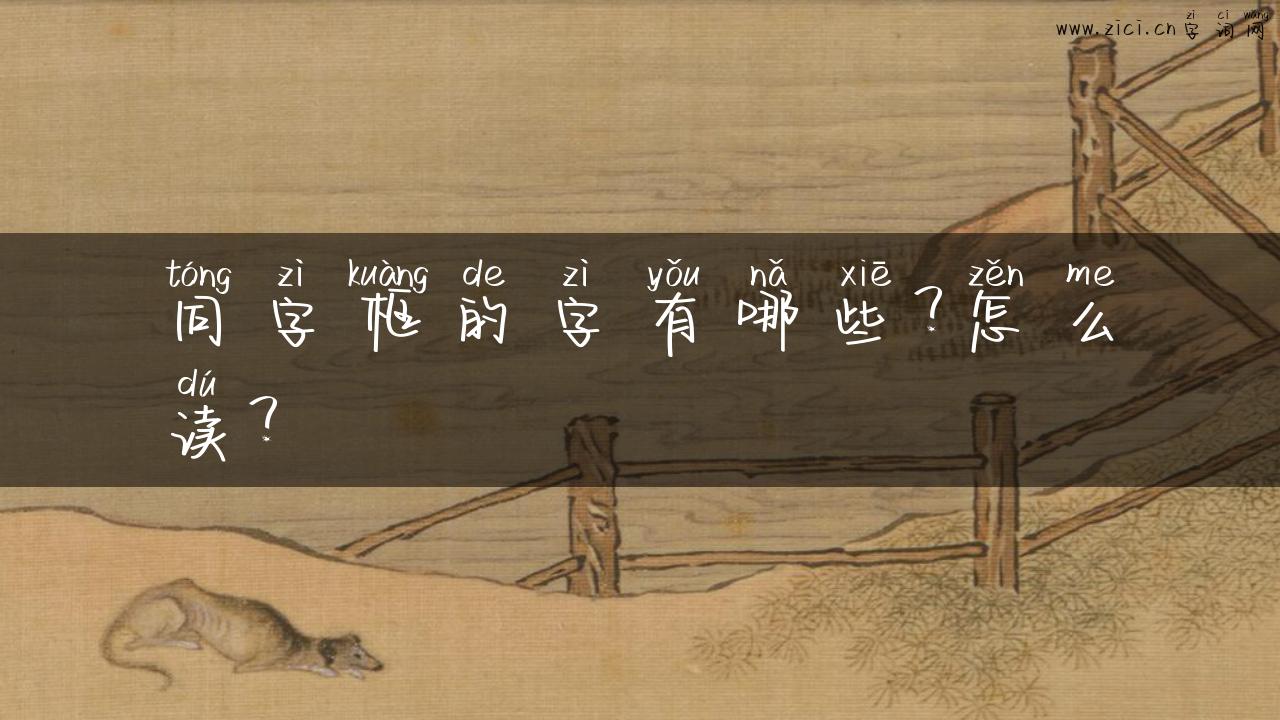 zì cí wǎng
www.zici.cn 字 词 网
tóng zì kuàng de zì yǒu nǎ xiē zěn me
同 字 框 的 字 有 哪 些 ? 怎 么
dú
读 ?